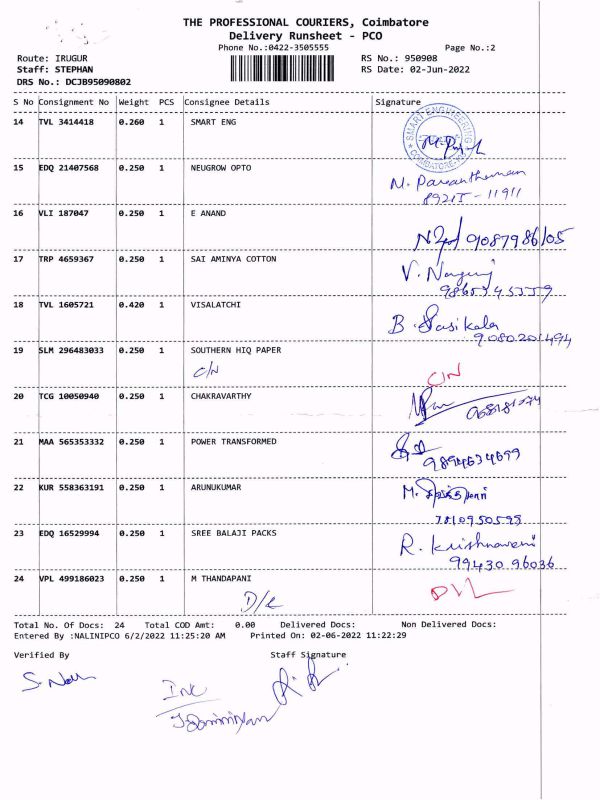 THE PROFESSIONAL COURIERS, Coimbatore
Delivery Runsheet - PCO
Phone No.:0422-3505555 Page No.:2
Route: IRUGUR RS No.: 950908
Staff: STEPHAN RS Date: 02-Jun-2022
DRS No.: DCJB95090802
S No Consignment No Weight PCS Consignee Details Signature
14 TVL 3414418 0.260 1 SMART ENG
SMART ENGINEERING
COIMBATORE
15 EDQ 21407568 0.250 1 NEUGROW OPTO
M. Parantheman
89215-11911
16 VLI 187047 0.250 1 E ANAND
9087986105
17 TRP 4659367 0.250 1 SAI AMINYA COTTON
V.
9865345559
18 TVL 1605721 0.420 1 VISALATCHI
B. Sasikala
9080201494
19 SLM 296483033 0.250 1 SOUTHERN HIQ PAPER
C/N C/N
20 TCG 10050940 0.250 1 CHAKRAVARTHY
21 MAA 565353332 0.250 1 POWER TRANSFORMED
9894634699
22 KUR 558363191 0.250 1 ARUNUKUMAR
M.
7810950595
23 EDQ 16529994 0.250 1 SREE BALAJI PACKS
R. Krishnaveni
99430 96036
24 VPL 499186023 0.250 1 M THANDAPANI
D/L
Total No. Of Docs: 24 Total COD Amt: 0.00 Delivered Docs: Non Delivered Docs:
Entered By :NALINIPCO 6/2/2022 11:25:20 AM Printed On: 02-06-2022 11:22:29
Verified By Staff Signature